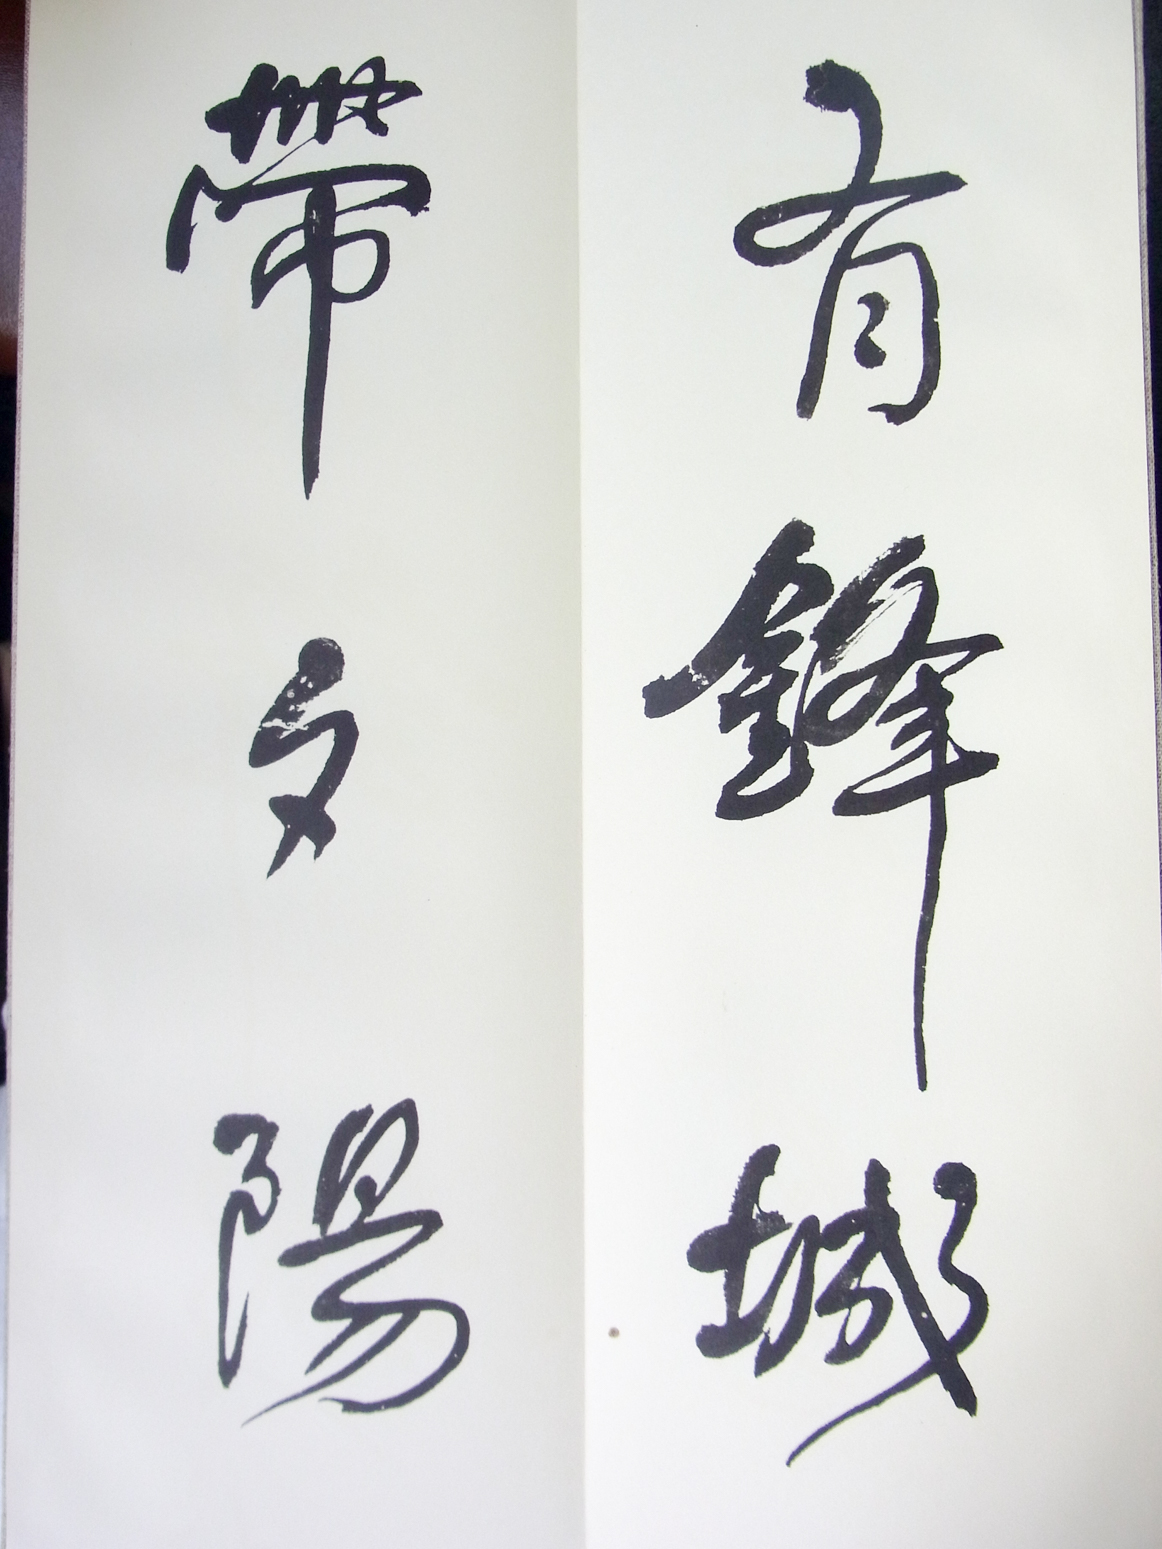 有鋒城
帶夕陽